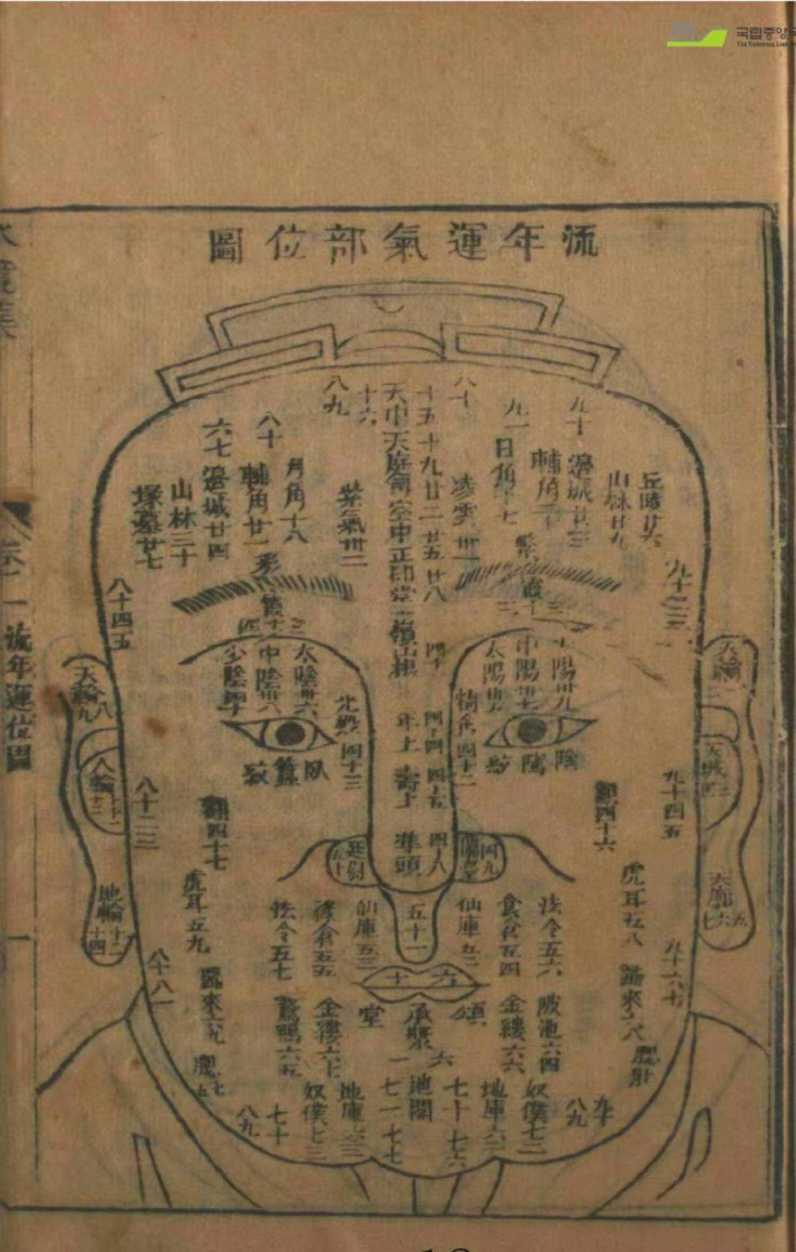 국립중앙
流年運氣部位圖
卷一
流年運位圖
八九
十六
天中天庭司空中正印堂
十五十九廿二廿五廿八
八十
凌雲卅一
紫氣卅二
九一
日角十七
輔角二十
九十
邊城廿三
山林廿九
丘陵廿六
月角十八
八十
輔角廿一
六七
邊城廿四
山林三十
塚墓廿七
彩
繁
八十四五
九十二三
山根
四十
太陰卅六
中陰卅八
少陰四十
太陽卅五
中陽卅七
少陽卅九
光殿四十三
精舍四十二
年上
四十四
壽上
四十五
準頭
四十八
臥蠶
陰騭
天輪
八九
人輪
地輪
十四
天城
天廓
五六七
顴四十七
顴四十六
八十二三
九十四五
廷尉
五十
四九
虎耳五九
虎耳五八
法令五七
食倉五五
仙庫五三
五十一
仙庫五二
食倉五四
法令五六
八十八一
九十六七
六十
歸來六九
歸來六八
鵝鴨六五
金縷六七
堂
承漿
六一
頌
金縷六六
陂池六四
腮
腮骨
八九
七十
奴僕七三
地庫六三
地閣
七一七七
七十七六
地庫六二
奴僕七二
八九